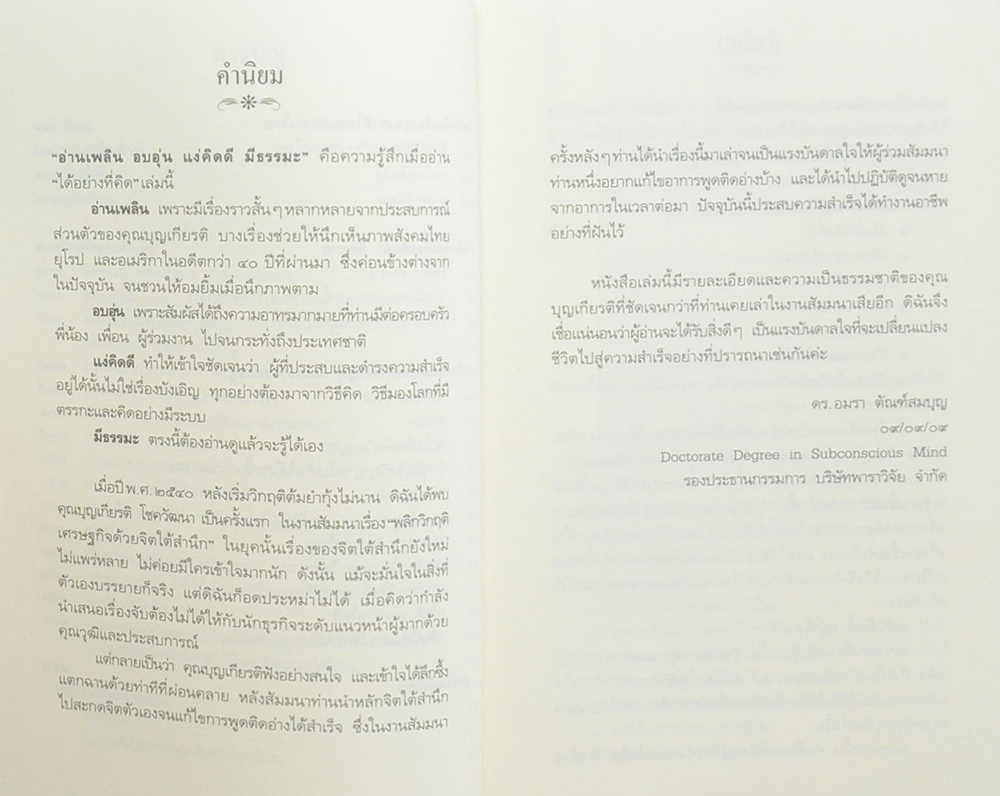 คำนิยม
“อ่านเพลิน อบอุ่น แง่คิดดี มีธรรมะ” คือความรู้สึกเมื่ออ่าน
“ได้อย่างที่คิด”เล่มนี้
อ่านเพลิน เพราะมีเรื่องราวสั้นๆหลากหลายจากประสบการณ์
ส่วนตัวของคุณบุญเกียรติ บางเรื่องช่วยให้นึกเห็นภาพสังคมไทย
ยุโรป และอเมริกาในอดีตกว่า ๔๐ ปีที่ผ่านมา ซึ่งค่อนข้างต่างจาก
ในปัจจุบัน จนชวนให้อมยิ้มเมื่อนึกภาพตาม
อบอุ่น เพราะสัมผัสได้ถึงความอาทรมากมายที่ท่านมีต่อครอบครัว
พี่น้อง เพื่อน ผู้ร่วมงาน ไปจนกระทั่งถึงประเทศชาติ
แง่คิดดี ทำให้เข้าใจชัดเจนว่า ผู้ที่ประสบและดำรงความสำเร็จ
อยู่ได้นั้นไม่ใช่เรื่องบังเอิญ ทุกอย่างต้องมาจากวิธีคิด วิธีมองโลกที่มี
ตรรกะและคิดอย่างมีระบบ
มีธรรมะ ตรงนี้ต้องอ่านดูแล้วจะรู้ได้เอง
เมื่อปีพ.ศ.๒๕๔๐ หลังเริ่มวิกฤติต้มยำกุ้งไม่นาน ดิฉันได้พบ
คุณบุญเกียรติ โชควัฒนา เป็นครั้งแรก ในงานสัมมนาเรื่อง“พลิกวิกฤติ
เศรษฐกิจด้วยจิตใต้สำนึก” ในยุคนั้นเรื่องของจิตใต้สำนึกยังใหม่
ไม่แพร่หลาย ไม่ค่อยมีใครเข้าใจมากนัก ดังนั้น แม้จะมั่นใจในสิ่งที่
ตัวเองบรรยายก็จริง แต่ดิฉันก็อดประหม่าไม่ได้ เมื่อคิดว่ากำลัง
นำเสนอเรื่องจับต้องไม่ได้ให้กับนักธุรกิจระดับแนวหน้าผู้มากด้วย
คุณวุฒิและประสบการณ์
แต่กลายเป็นว่า คุณบุญเกียรติฟังอย่างสนใจ และเข้าใจได้ลึกซึ้ง
แตกฉานด้วยท่าทีที่ผ่อนคลาย หลังสัมมนาท่านนำหลักจิตใต้สำนึก
ไปสะกดจิตตัวเองจนแก้ไขการพูดติดอ่างได้สำเร็จ ซึ่งในงานสัมมนา
ครั้งหลังๆท่านได้นำเรื่องนี้มาเล่าจนเป็นแรงบันดาลใจให้ผู้ร่วมสัมมนา
ท่านหนึ่งอยากแก้ไขอาการพูดติดอ่างบ้าง และได้นำไปปฏิบัติดูจนหาย
จากอาการในเวลาต่อมา ปัจจุบันนี้ประสบความสำเร็จได้ทำงานอาชีพ
อย่างที่ฝันไว้
หนังสือเล่มนี้มีรายละเอียดและความเป็นธรรมชาติของคุณ
บุญเกียรติที่ชัดเจนกว่าที่ท่านเคยเล่าในงานสัมมนาเสียอีก ดิฉันจึง
เชื่อแน่นอนว่าผู้อ่านจะได้รับสิ่งดีๆ เป็นแรงบันดาลใจที่จะเปลี่ยนแปลง
ชีวิตไปสู่ความสำเร็จอย่างที่ปรารถนาเช่นกันค่ะ
ดร.อมรา ตัณฑ์สมบุญ
๐๙/๐๙/๐๙
Doctorate Degree in Subconscious Mind
รองประธานกรรมการ บริษัทพาราวิจัย จำกัด